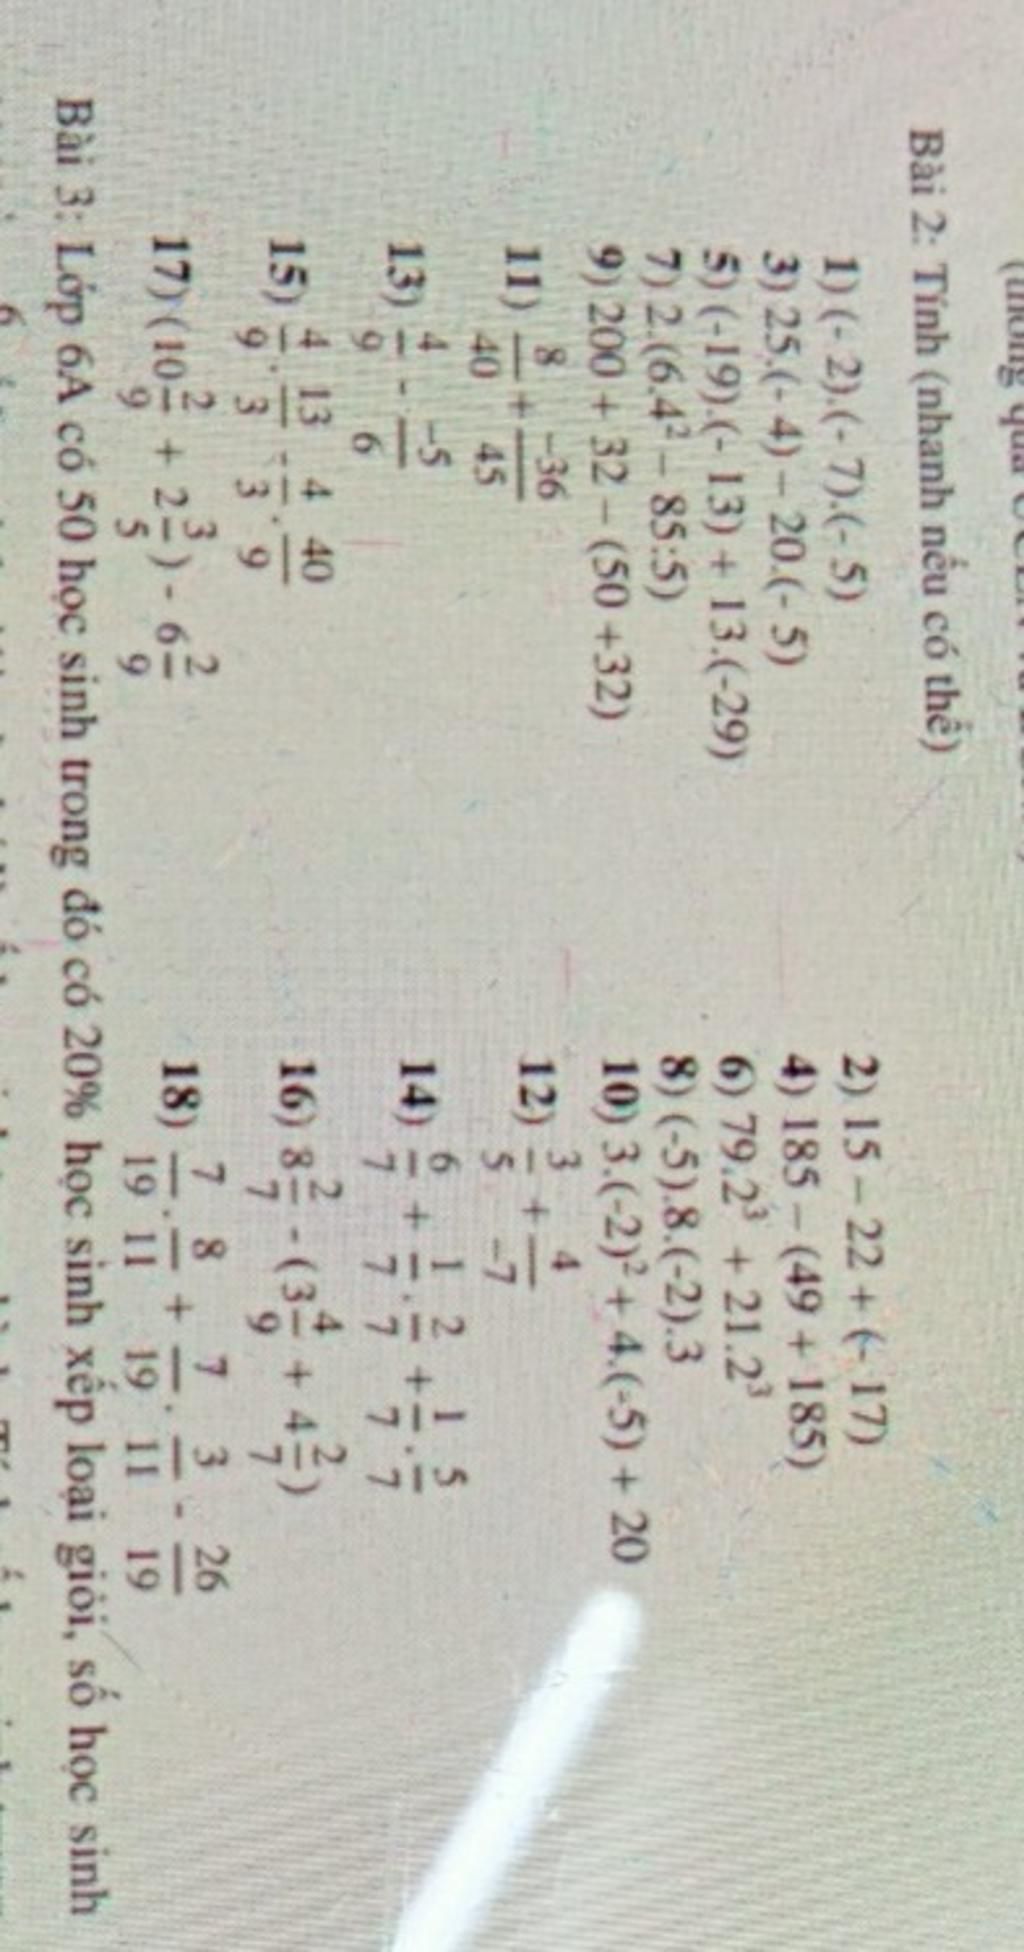 Bài 2: Tính (nhanh nếu có thể)
1) (- 2).(- 7).(- 5)
2) 15 – 22 + (- 17)
3) 25.(- 4) – 20.(- 5)
4) 185 – (49 + 185)
5) (-19).(- 13) + 13.(-29)
6) 79.2³ + 21.2³
7) 2.(6.4² – 85:5)
8) (-5).8.(-2).3
9) 200 + 32 – (50 +32)
10) 3.(-2)² + 4.(-5) + 20
11) 8/40 + -36/45
12) 3/5 + 4/-7
13) 4/9 - -5/6
14) 6/7 + 1/7 . 2/7 + 1/7 . 5/7
15) 4/9 . 13/3 - 4/3 . 40/9
16) 8 2/7 - (3 4/9 + 4 2/7)
17) (10 2/9 + 2 3/5) - 6 2/9
18) 7/19 . 8/11 + 7/19 . 3/11 - 26/19
Bài 3: Lớp 6A có 50 học sinh trong đó có 20% học sinh xếp loại giỏi, số học sinh